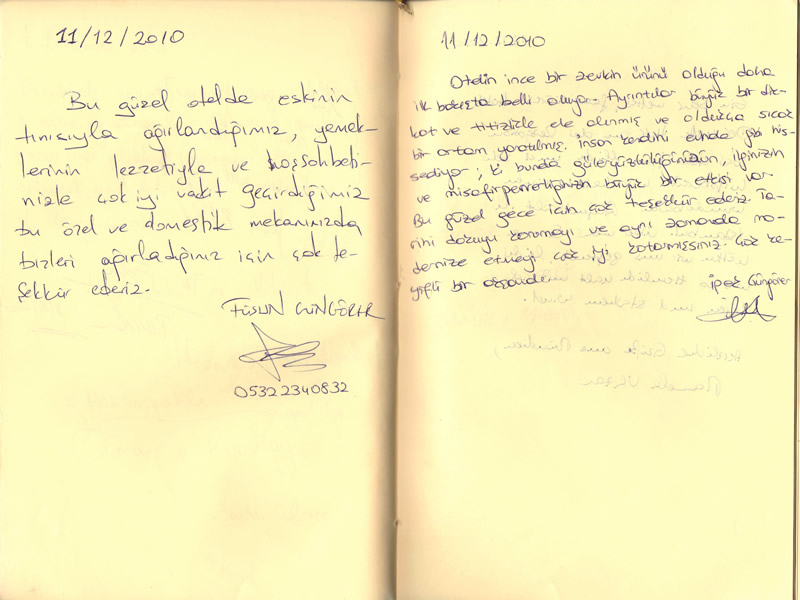 11/12/2010
Bu güzel otelde eskinin
tınısıyla ağırlandığımız, yemek-
lerinin lezzetiyle ve hoşsohbeti-
nizle çok iyi vakit geçirdiğimiz
bu özel ve domestik mekanınızda
bizleri ağırladığınız için çok te-
şekkür ederiz.
FÜSUN GÜNGÖRER
05322340832
11/12/2010
Otelin ince bir zevkin ürünü olduğu daha
ilk bakışta belli oluyor. Ayrıntılar büyük bir dik-
kat ve titizlikle ele alınmış ve oldukça sıcak
bir ortam yaratılmış. İnsan kendini evinde gibi his-
sediyor; ki bunda güleryüzlülüğünüzün, ilginizin
ve misafirperverliğinizin büyük bir etkisi var
Bu güzel gece için çok teşekkür ederiz. Ta-
rihi dokuyu korumayı ve aynı zamanda mo-
dernize etmeyi çok iyi kotarmışsınız. Çok ke-
yifli bir
İpek Güngörer